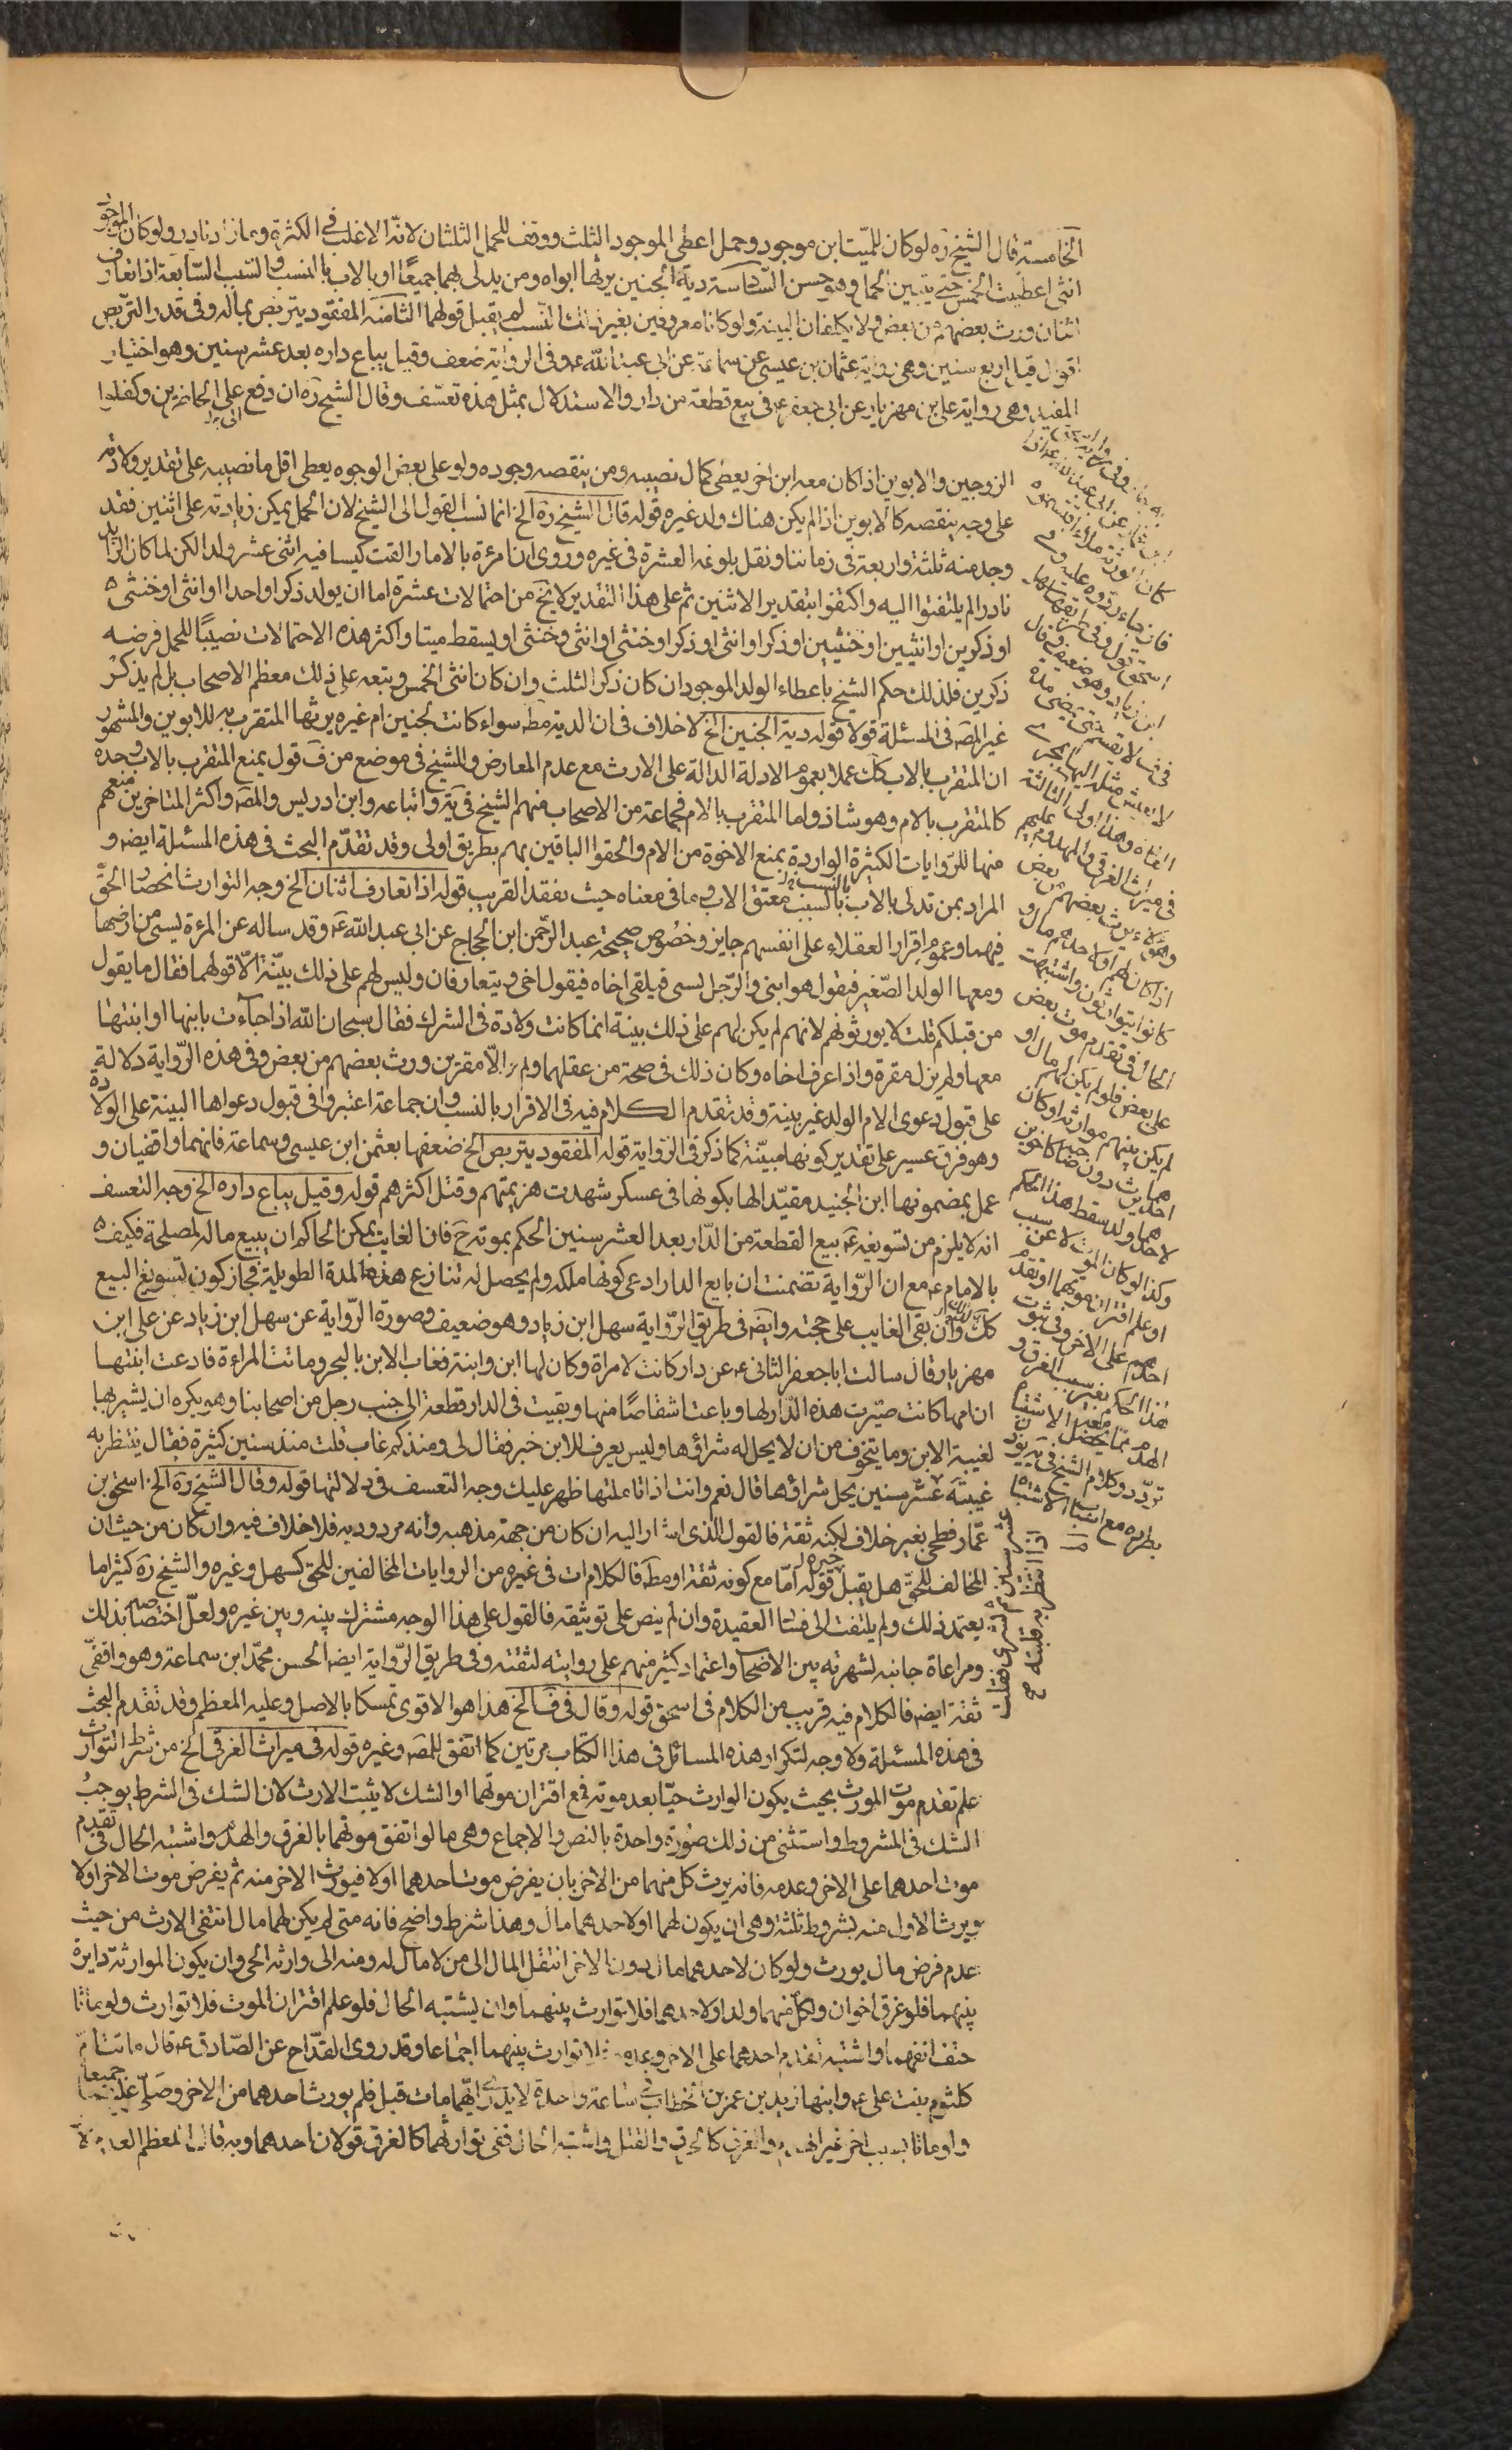 الخامسة قال الشيخ ره لو كان للميت ابن موجود وحمل اعطى الموجود الثلث ووقف للحمل الثلثان لانه الاغلب فى الكثرة وما زاد نادر ولو كان الموجود
انثى اعطيت الخمس حتى يتبين الحمل وهو حسن السادسة دية الجنين يرثها ابواه ومن يدلى بهما جميعا او بالاب بالنسب والسبب السابعة اذا تعارف
اثنان ورث بعضهم من بعض ولا يكلفان البينة ولو كانا معروفين بغير ذلك النسب لم يقبل قولهما الثامنة المفقود يتربص بماله وفى قدر التربص
اقوال قيل اربع سنين وهى رواية عثمان بن عيسى عن سماعة عن ابى عبد الله ع وفى الرواية ضعف وقيل يباع داره بعد عشر سنين وهو اختيار
المفيد وهى رواية على بن مهزيار عن ابى جعفر ع فى بيع قطعة من دار والاستدلال بمثل هذه تعسف وقال الشيخ ره ان دفع الى الحاضرين وكفلوا
الزوجين والابوين اذا كان معه ابن اخر يعطى كمال نصيبه ومن ينقصه وجوده ولو على بعض الوجوه يعطى اقل ما نصيبه على تقدير ولادته
على وجه ينقصه كالابوين اذا لم يكن هناك ولد غيره قوله قال الشيخ ره الخ انما نسب القول الى الشيخ لان الحمل يمكن زيادته على اثنين فقد
وجد منه ثلثة واربعة فى زماننا ونقل بلوغه العشرة فى غيره وروى ان امرءة بالامار القت كيسا فيه اثنى عشر ولدا لكن لما كان الزايد
نادرا لم يلتفتوا اليه واكتفوا بتقدير الاثنين ثم على هذا التقدير لا يخ من احتمالات عشرة اما ان يولد ذكرا واحدا او انثى او خنثى
او ذكرين او انثيين او خنثيين او ذكرا وانثى او ذكرا وخنثى او انثى وخنثى او يسقط ميتا واكثر هذه الاحتمالات نصيبا للحمل فرضه
ذكرين فلذلك حكم الشيخ باعطاء الولد الموجود ان كان ذكرا الثلث وان كان انثى الخمس وتبعه على ذلك معظم الاصحاب بل لم يذكر
غير المصه فى المسئلة قولا قوله دية الجنين الخ لا خلاف فى ان الدية مطه سواء كانت لجنين ام غيره يرثها المتقرب به للابوين والمشهور
ان المتقرب بالاب كك عملا بعموم الادلة الدالة على الارث مع عدم المعارض وللشيخ فى موضع من ف قول بمنع المتقرب بالاب وحده
كالمتقرب بالام وهو شاذ واما المتقرب بالام فجماعة من الاصحاب منهم الشيخ فى ية واتباعه وابن ادريس والمصه واكثر المتاخرين منعهم
منها للروايات الكثيرة الواردة بمنع الاخوة من الام والحقوا الباقين بهم بطريق اولى وقد تقدم البحث فى هذه المسئلة ايضه و
المراد بمن تدلى بالاب بالسبب معتق الاب وما فى معناه حيث يفقد القريب قوله اذا تعارف اثنان الخ وجه التوارث انحصار الحق
فيهما وعموم اقرار العقلاء على انفسهم جايز وخصوص صحيحة عبد الرحمن ابن الحجاج عن ابى عبد الله ع وقد ساله عن المرءة يسبى من ارضها
ومعها الولد الصغير فيقول هو ابنى والرجل يسبى فيلقى اخاه فيقول اخى ويتعارفان وليس لهم على ذلك بينة الا قولهما فقال ما يقول
من قبلكم قلت لا يورثونهم لانهم لم يكن لهم على ذلك بينة انما كانت ولادة فى الشرك فقال سبحان الله اذا جاءت بابنها او ابنتها
معها ولم يزل مقرة واذا عرف اخاه وكان ذلك فى صحة من عقلهما ولم يزالا مقرين ورث بعضهم من بعض وفى هذه الرواية دلالة
على قبول دعوى الام الولد غير بينة وقد تقدم الكلام فيه فى الاقرار بالنسب وان جماعة اعتبروا فى قبول دعواها البينة على الولادة
وهو فرق عسير على تقدير كونها مبينة كما ذكر فى الرواية قوله المفقود يتربص الخ ضعفها بعثمن ابن عيسى وسماعة فانهما واقفيان و
عمل بمضمونها ابن الجنيد مقيدا لها بكونها فى عسكر شهدت هزيمتهم وقتل اكثرهم قوله وقيل يباع داره الخ وجه التعسف
انه لا يلزم من تسويغه ع بيع القطعة من الدار بعد العشر سنين الحكم بموته ح فان الغايب يمكن الحاكم ان يبيع ماله لمصلحة فكيف
بالامام ع مع ان الرواية تضمنت ان بايع الدار ادعى كونها ملكه ولم يحصل له تنازع هذه المدة الطويلة فجاز كون تسويغ البيع
كك وان بقى الغايب على حجته وايضه فى طريق الرواية سهل ابن زياد وهو ضعيف وصورة الرواية عن سهل ابن زياد عن على ابن
مهزيار قال سالت ابا جعفر الثانى ع عن دار كانت لامراة وكان لها ابن وابنة فغاب الابن بالبحر وماتت المراءة فادعت ابنتها
ان امها كانت صيرت هذه الدار لها وباعت اشقاصا منها وبقيت فى الدار قطعة الى جنب رجل من اصحابنا وهو يكره ان يشتريها
لغيبة الابن وما يتخوف من ان لا يحل له شراؤها وليس يعرف للابن خبر فقال لى ومنذ كم غاب قلت منذ سنين كثيرة فقال ينتظر به
غيبته عشر سنين يحل شراؤها قال نعم وانت اذا تاملتها ظهر عليك وجه التعسف فى دلالتها قوله وقال الشيخ ره الخ اسحق بن
عمار فطحى بغير خلاف لكنه ثقة فالقول الذى اشار اليه ان كان من جهة مذهبه وانه مردود به فلا خلاف فيه وان كان من حيث ان
المخالف للحق هل يقبل قوله اما مع كونه ثقة او مطه فالكلام ات فى غيره من الروايات المخالفين للحق كسهل وغيره والشيخ ره كثيرا ما
يعتمد ذلك ولم يلتفت الى فساد العقيدة وان لم ينص على توثيقه فالقول على هذا الوجه مشترك بينه وبين غيره ولعل اختصاصه بذلك
ومراعاة جانبه لشهرته بين الاصحاب واعتماد كثير منهم على روايته لثقته وفى طريق الرواية ايضه الحسن محمد ابن سماعة وهو واقفى
ثقة ايضه فالكلام فيه قريب من الكلام فى اسحق قوله وقال فى ف الخ هذا هو الاقوى تمسكا بالاصل وعليه المعظم وقد تقدم البحث
فى هذه المسئلة ولا وجه لتكرار هذه المسائل فى هذا الكتاب مرتين كما اتفق للمصه وغيره قوله فى ميراث الغرقى الخ من شرط التوارث
علم تقدم موت المورث بحيث يكون الوارث حيا بعد موته فمع اقتران موتهما او الشك لا يثبت الارث لان الشك فى الشرط يوجب
الشك فى المشروط واستثنى من ذلك صورة واحدة بالنص والاجماع وهى ما لو اتفق موتهما بالغرق والهدم واشتبه الحال فى تقدم
موت احدهما على الاخر وعدمه فانه يرث كل منهما من الاخر بان يفرض موت احدهما اولا فيورث الاخر منه ثم يفرض موت الاخر اولا
ويرث الاول منه بشروط ثلثة وهى ان يكون لهما او لاحدهما مال وهذا شرط واضح فانه متى لم يكن لهما مال انتفى الارث من حيث
عدم فرض مال يورث ولو كان لاحدهما مال دون الاخر انتقل المال الى من لا مال له ومنه الى وارثه الحى وان يكون الموارثة دايرة
بينهما فلو غرق اخوان ولكل منهما ولد او لاحدهما فلا توارث بينهما وان يشتبه الحال فلو علم اقتران الموت فلا توارث ولو ماتا
حتف انفهما واشتبه تقدم احدهما على الاخر وعدمه فلا توارث بينهما اجماعا وقد روى القداح عن الصادق ع قال ماتت ام
كلثوم بنت على ع وابنها زيد بن عمر بن الخطاب فى ساعة واحدة لا يدرى ايهما مات قبل فلم يورث احدهما من الاخر وصلى عليهما جميعا
ولو ماتا بسبب اخر غير الهدم والغرق كالحرق والقتل واشتبه الحال ففى توارثهما كالغرق قولان احدهما وبه قال المعظم العدم
فان جاء ردوه عليه
ابن زياد وهو ضعيف وقال
فى ف لا يقسم حتى يمضى مدة
لا يعيش مثله اليها
وهذا اولى الثالثة
فى ميراث الغرقى والمهدوم عليهم
وهؤلاء يرث بعضهم من بعض
اذا كان لهم او لاحدهم مال و
كانوا يتوارثون واشتبهت
الحال فى تقدم موت بعض
على بعض فلو لم يكن لهم مال او
لم يكن بينهم موارثة او كان
احدهما يرث دون صاحبه كاخوين
لاحدهما ولد سقط هذا الحكم
وكذا لو كان الموت لا عن سبب
او علم اقتران موتهما او تقدم
احدهما على الاخر وفى ثبوت
هذا الحكم بغير سبب الغرق و
الهدم مما يحصل معه الاشتباه
تردد وكلام الشيخ فى ية يؤذن
بطرده مع اسباب الاشتباه